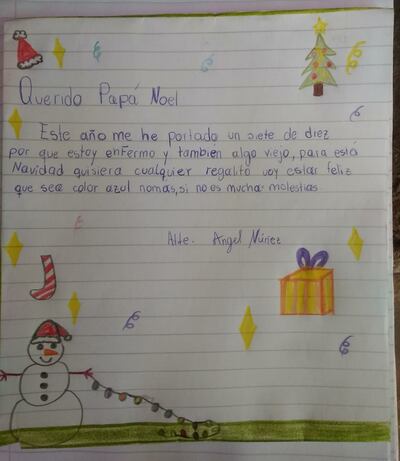 Querido Papá Noel
Este año me he portado un siete de diez
por que estoy enfermo y también algo viejo, para está
Navidad quisiera cualquier regalito voy estar feliz
que sea color azul nomás, si no es mucha molestias
Atte. Angel Núñez